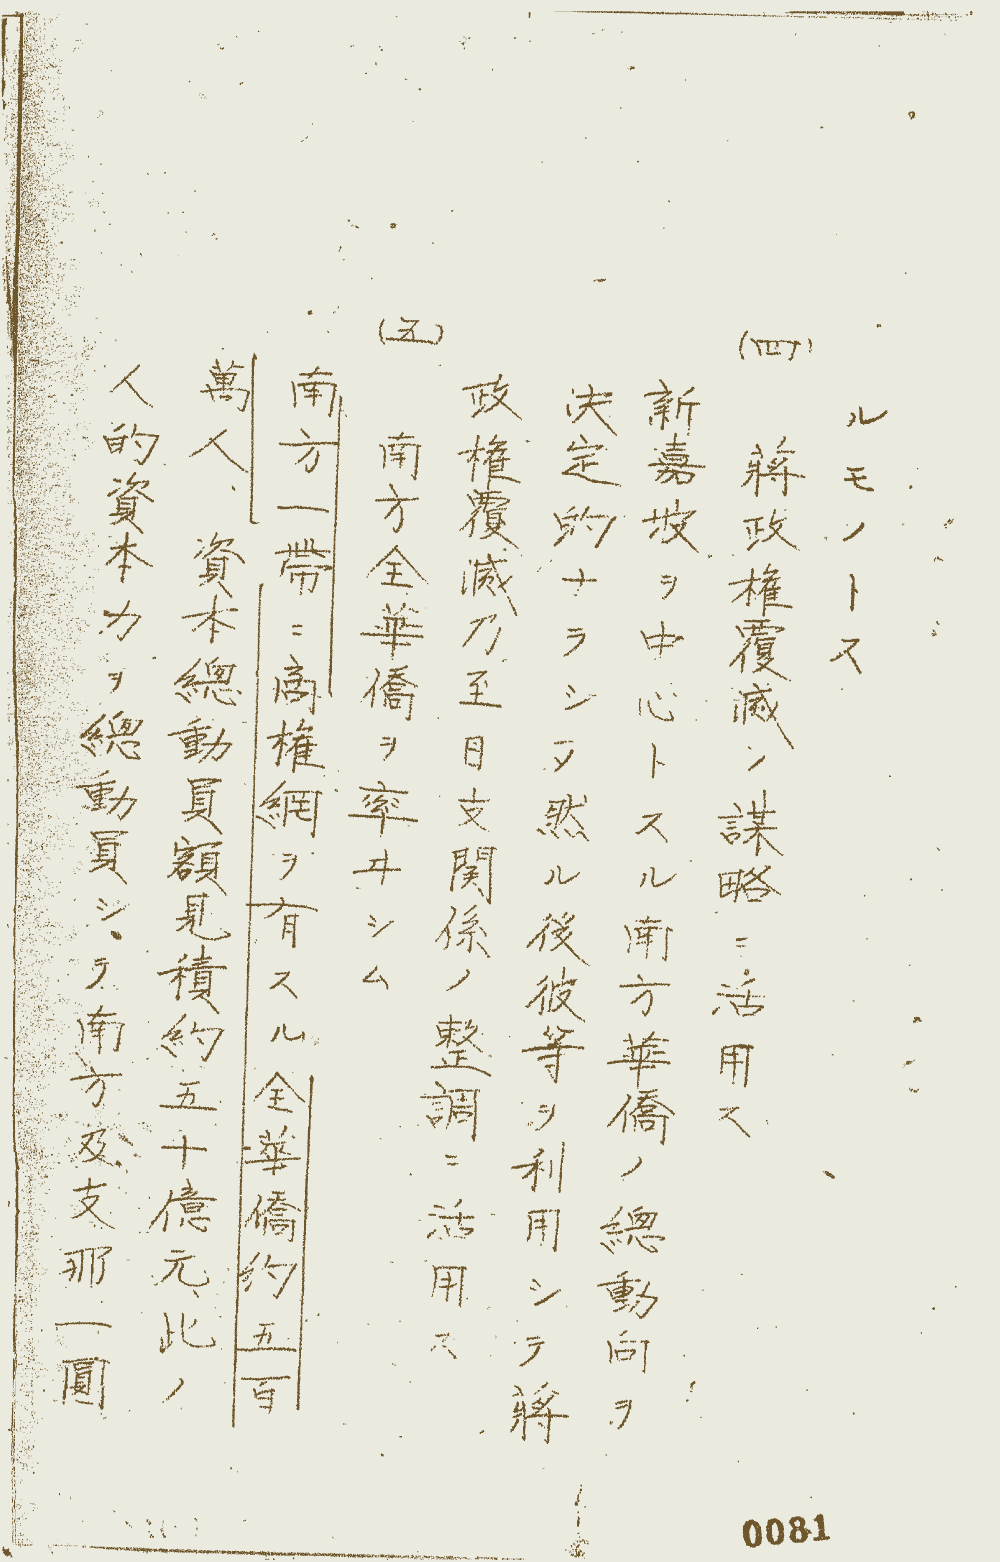 ルモノトス
(四)
蔣政権覆滅ノ謀略ニ活用ス
新嘉坡ヲ中心トスル南方華僑ノ總動向ヲ
決定的ナラシメ然ル後彼等ヲ利用シテ蔣
政権覆滅乃至日支関係ノ整調ニ活用ス
(五)
南方全華僑ヲ率ヰシム
南方一帯ニ商権網ヲ有スル全華僑約五百
萬人、資本總動員額見積約五十億元、此ノ
人的資本力ヲ總動員シテ南方及支那一圓
0081